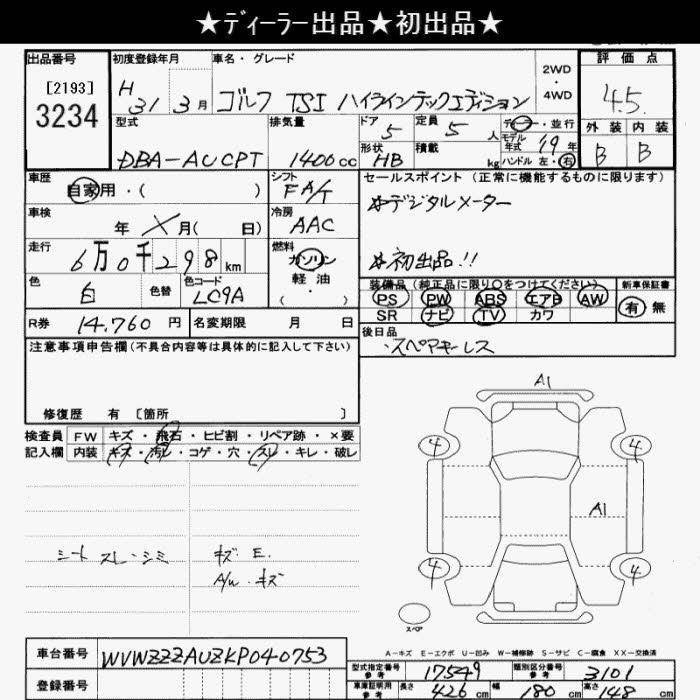 ★ディーラー出品★初出品★
出品番号 初度登録年月 車名・グレード 評価点
[2193]
3234
H 31 3月 ゴルフ TSI ハイラインテックエディション 2WD・4WD 4.5
型式 排気量 ドア 定員 ディーラー・並行 外装 内装
DBA-AUCPT 1400cc 5 5人 モデル年式 19年 B B
形状 積載 ハンドル 左・右
HB kg
車歴 シフト セールスポイント (正常に機能するものに限ります)
自家用・( ) FA/T ☆デジタルメーター
車検 冷房
年 月( 日) AAC
走行 燃料 ☆初出品!!
6万0千298km ガソリン
軽油
・
( )
色 色替 色コード 装備品 (純正品に限り○をつけてください) 新車保証書
白 LC9A PS PW ABS エアB AW 有 無
SR ナビ TV カワ
R券 14.760円 名変期限 月 日 後日品
・スペアキーレス
注意事項申告欄(不具合内容等は具体的に記入して下さい)
修復歴 有 [箇所 ]
検査員 FW キズ・飛石・ヒビ割・リペア跡・×要
記入欄 内装 キズ・汚レ・コゲ・穴・スレ・キレ・破レ
A1
4 4
A1
4 4
シート スレ・シミ キズ E.
A/W・キズ
スペア
A-キズ E-エクボ U-凹み W-補修跡 S-サビ C-腐食 XX-交換済
車台番号 WVWZZZAUZKP040753
型式指定番号 参考 17549 類別区分番号 参考 3101
登録番号 車庫証明用 参考 長さ 426cm 幅 180cm 高さ 148cm